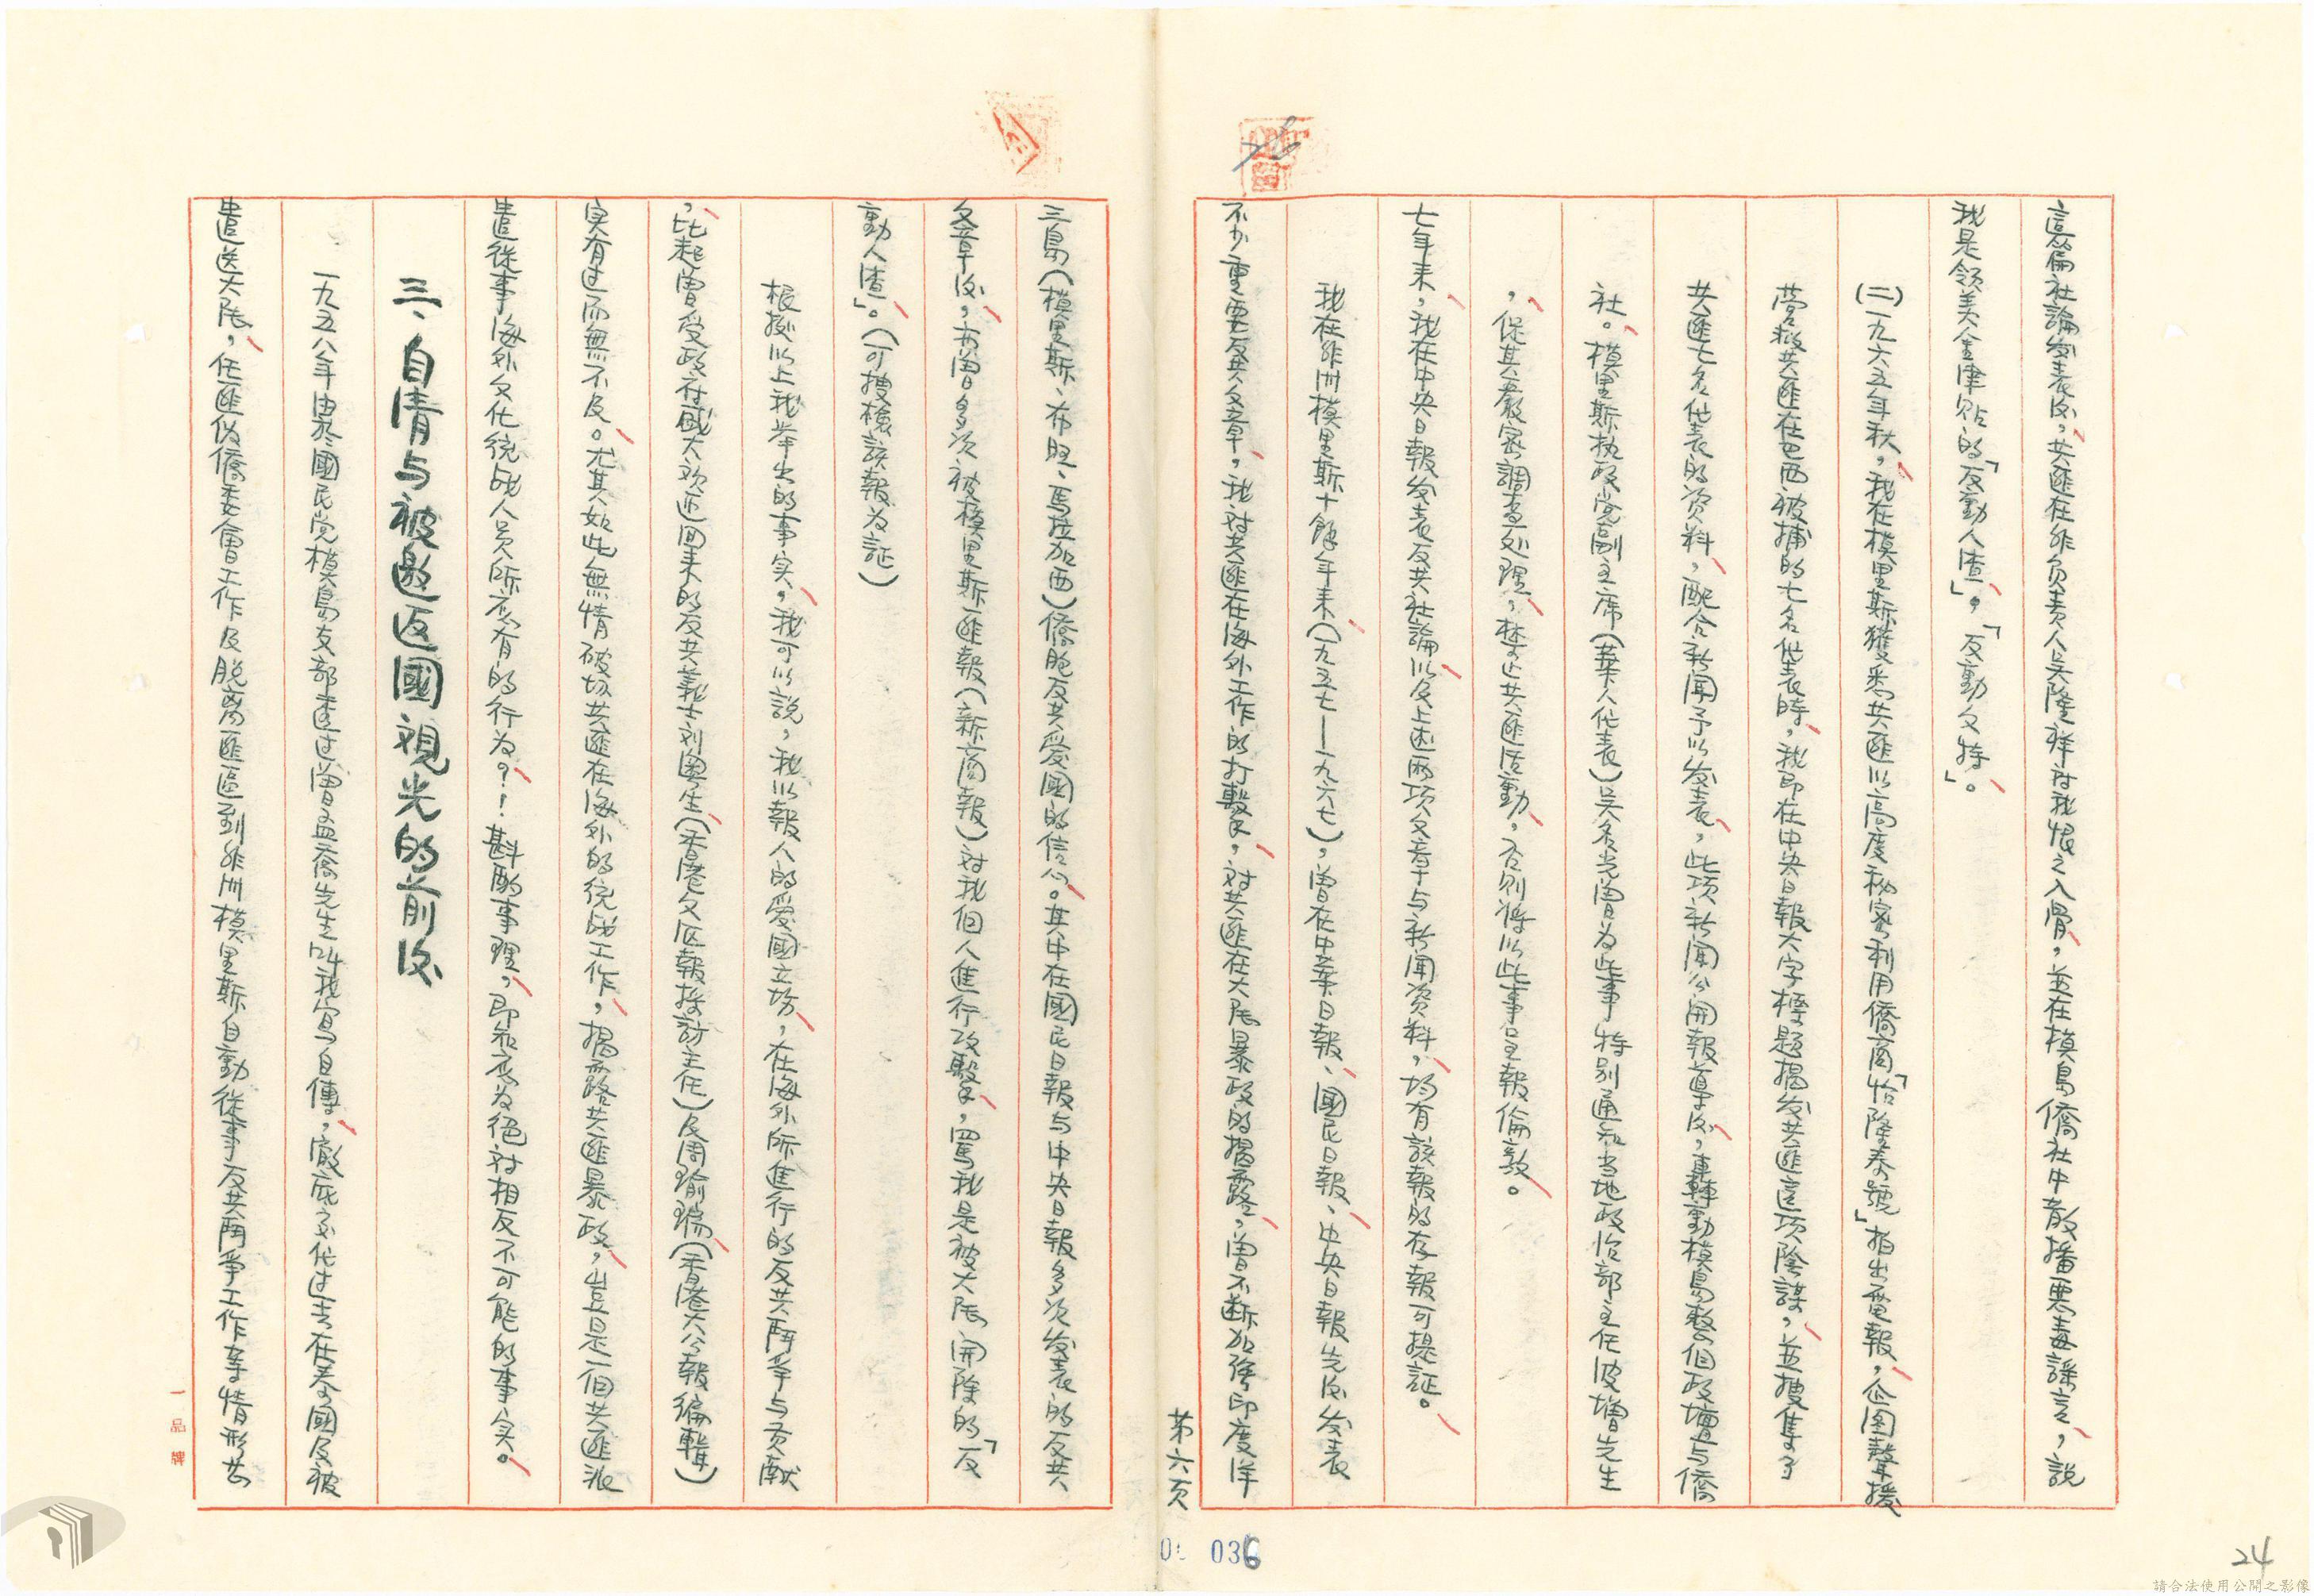 這篇社論发表后，共匪在非负责人吳隆祥对我恨之入骨，並在模島僑社中散播惡毒謠言，說
我是领美金津貼的「反動人渣」，「反動文特」。
(二)一九六五年秋，我在模里斯獲悉共匪以高度秘密利用僑商「怡隆泰號」拍出電報，企图聲援
营救共匪在巴西被捕的七名代表時，我即在中央日報大字標題揭发共匪這项陰謀，並搜集了
共匪七名代表的资料，配合新聞予以发表，此项新聞公開報導后，轟動模島整個政壇与僑
社。模里斯执政党副主席(華人代表)吳名光曾为此事特別通知当地政治部主任波增先生
，促其嚴密調查処理，禁止共匪活動，否则将以此事呈報倫敦。
七年来，我在中央日報发表反共社論以及上述两项文章与新聞资料，均有該報的存報可提証。
我在非洲模里斯十餘年来(一九五七—一九六七)，曾在中華日報、國民日報、中央日報先后发表
不少重要反共文章，我对共匪在海外工作的打擊，对共匪在大陆暴政的揭露，曾不断加強印度洋
第六页
三島(模里斯、布旺、馬拉加西)僑胞反共爱國的信心。其中在國民日報与中央日報多次发表的反共
文章后，亦曾多次被模里斯匪報(新商報)对我個人進行攻擊，罵我是被大陆開除的「反
動人渣」。(可搜檢該報为証)
根據以上我举出的事实，我可以說，我以報人的爱國立场，在海外所進行的反共鬥爭与贡献
，比起曾受政府盛大欢迎回来的反共義士刘奥生(香港文匯報採訪主任)及周瑜瑞(香港大公報編輯)
实有过而無不及。尤其如此無情破坏共匪在海外的统战工作，揭露共匪暴政，豈是一個共匪派
遣從事海外文化统战人员所应有的行为?！斟酌事理，即知应为绝对相反不可能的事实。
三、自清与被邀返國观光的前后
一九五八年由於國民党模島支部透过曾孟喬先生叫我写自傳，徹底交代过去在泰國及被
遣送大陆，任匪伪僑委會工作及脫离匪區到非洲模里斯自動從事反共鬥爭工作等情形共
一品牌
036
24
請合法使用公開之影像